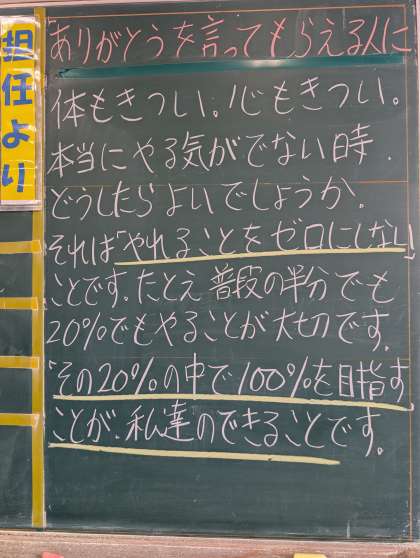 担任より
「ありがとうを言ってもらえる人に
体もきつい。心もきつい。
本当にやる気がでない時.
どうしたらよいでしょうか.
それは「やれることをゼロにしない」
ことです。たとえ普段の半分でも
20%でもやることが大切です。
「その20%の中で100%を目指す
ことが、私達のできることです。